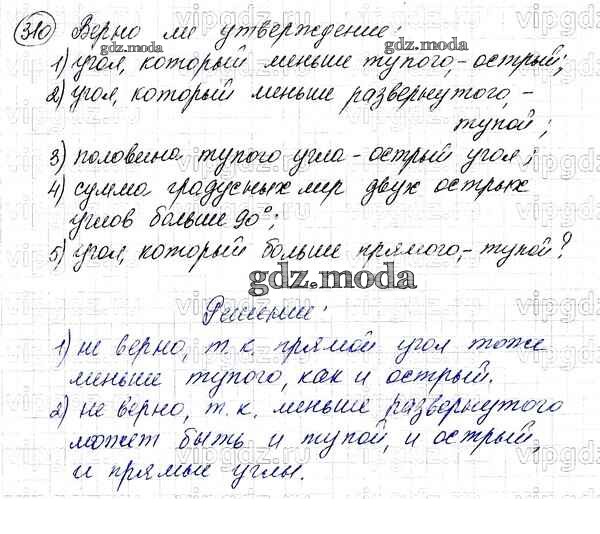 310 Верно ли утверждение:
gdz.moda gdz.moda
1) угол, который меньше тупого, - острый;
2) угол, который меньше развернутого, -
тупой;
3) половина тупого угла - острый угол;
4) сумма градусных мер двух острых
углов больше 90°;
5) угол, который больше прямого, - тупой?
gdz.moda
Решение:
1) не верно, т.к. прямой угол тоже
меньше тупого, как и острый.
2) не верно, т.к. меньше развернутого
может быть и тупой, и острый,
и прямые углы.